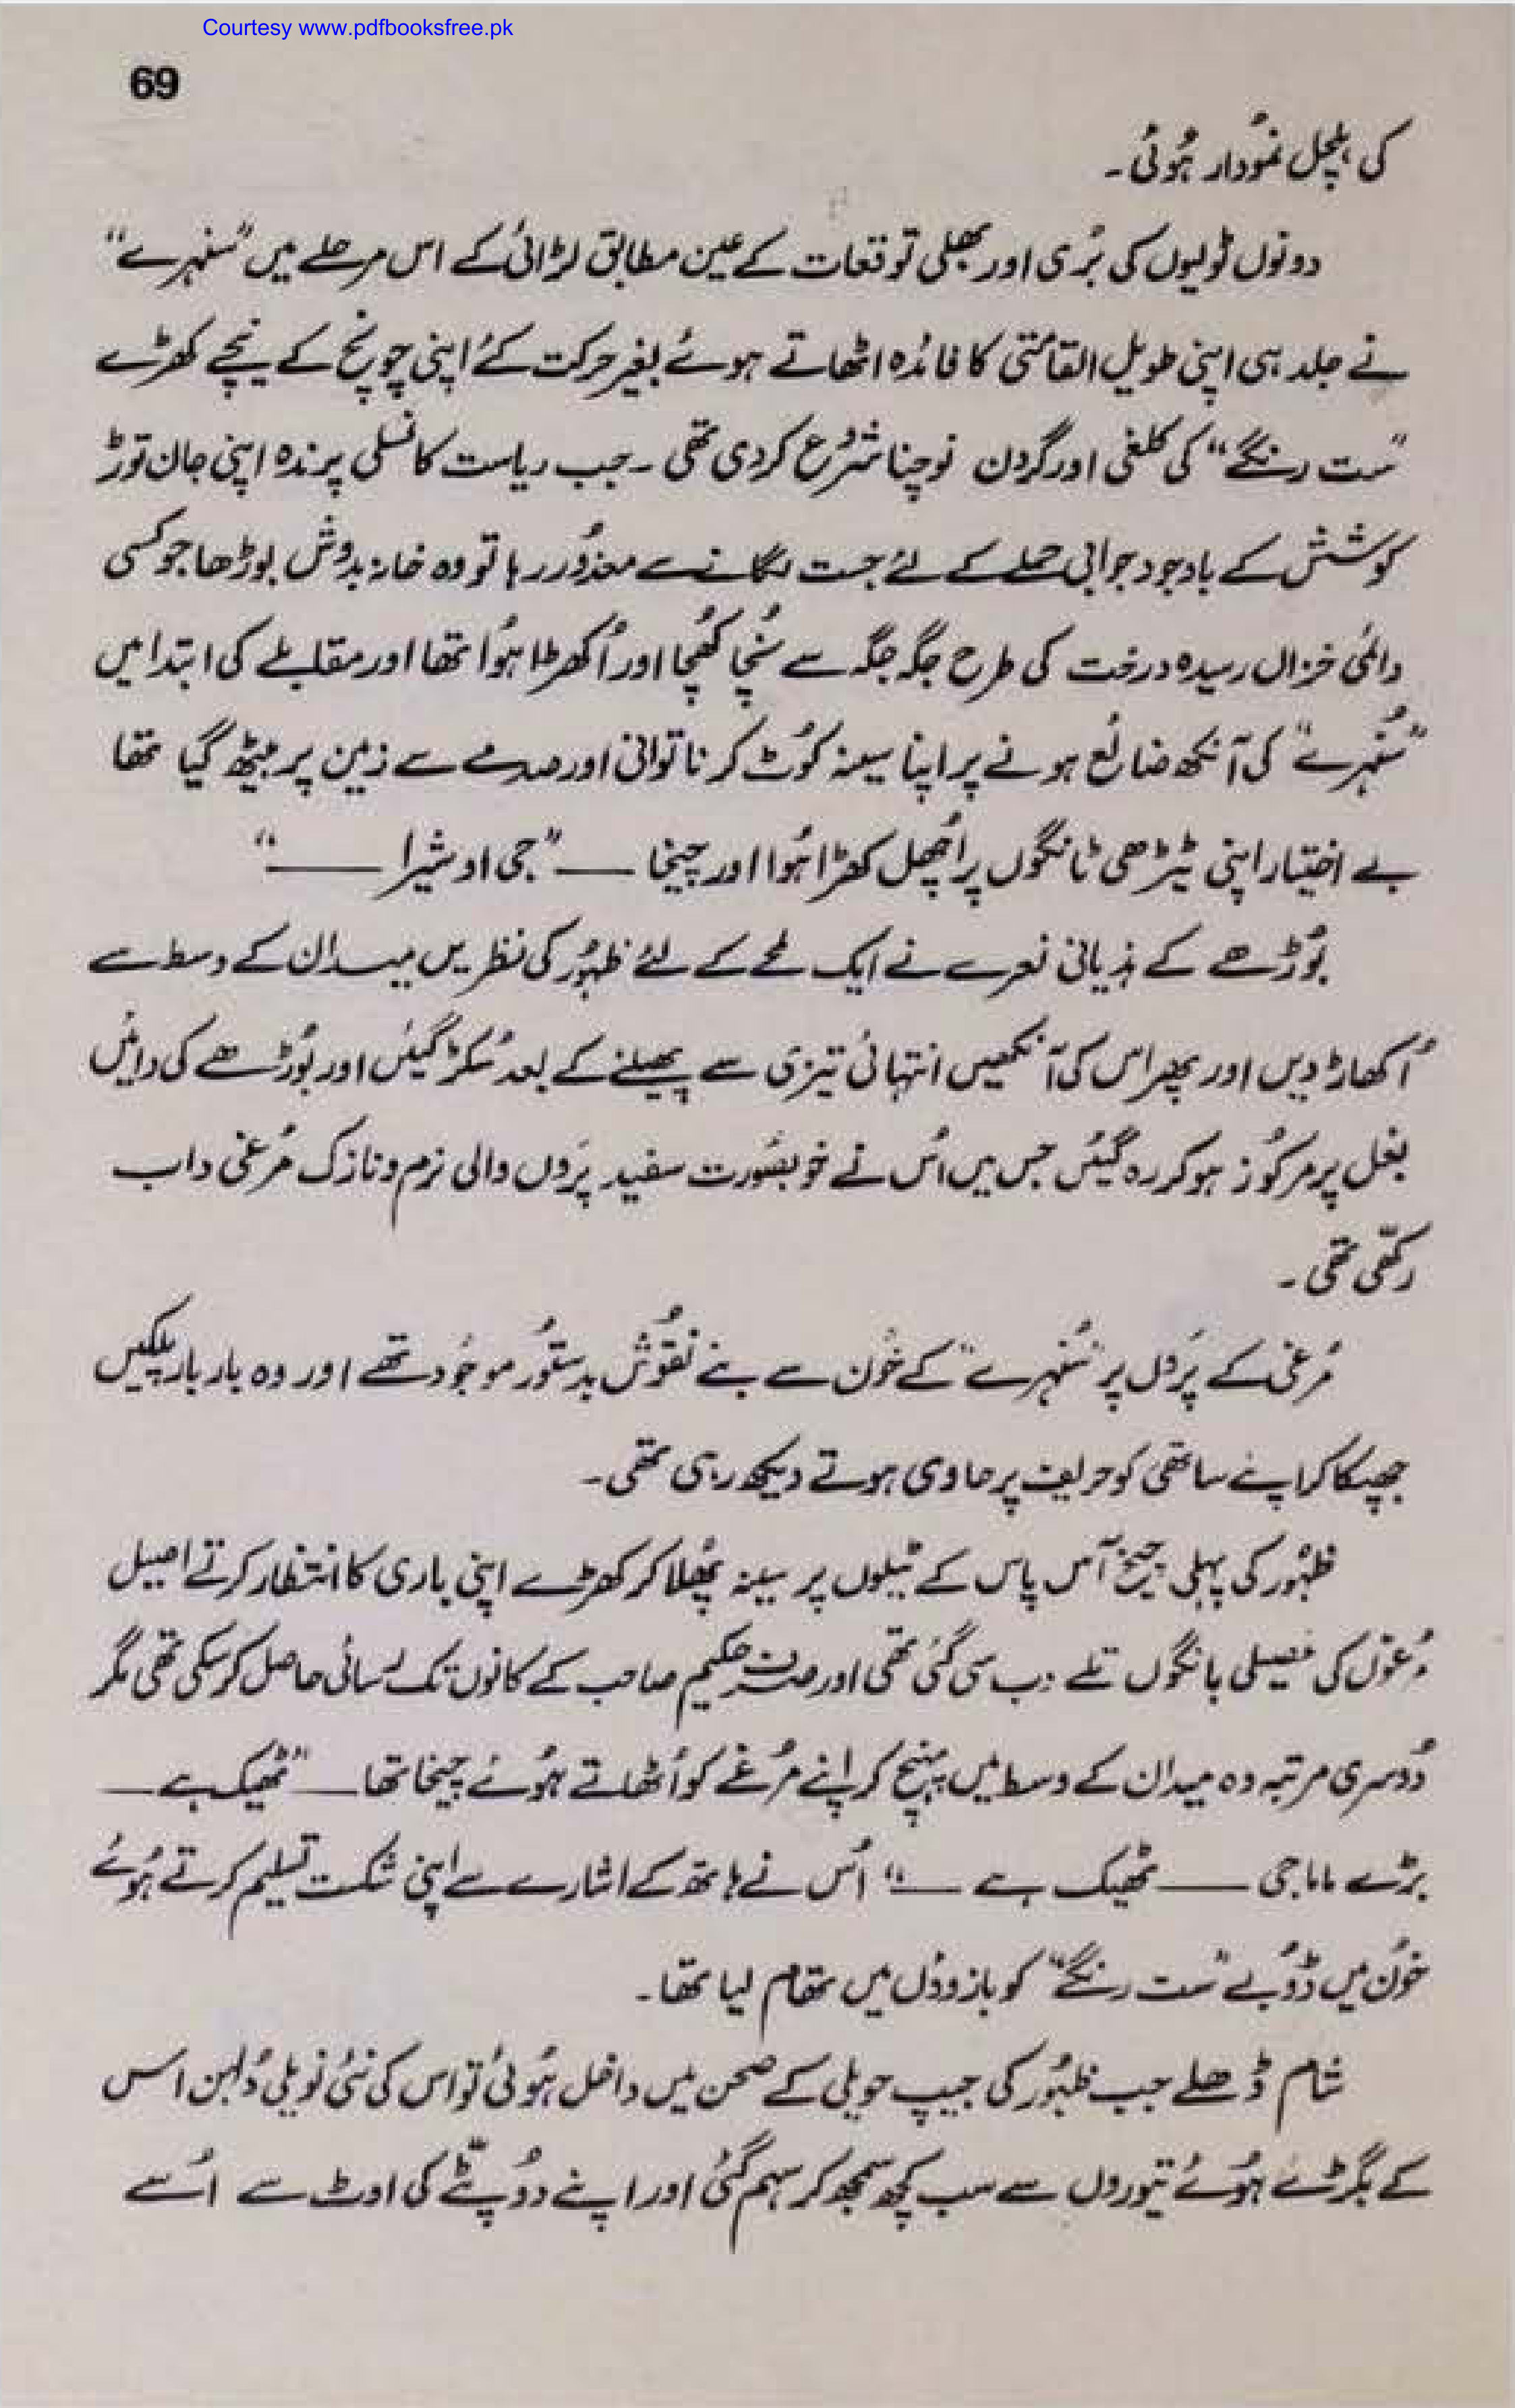 Courtesy www.pdfbooksfree.pk
69
کی ہلچل نمُودار ہُوئی ۔
دونوں ٹولیوں کی بُری اور بھلی توقعات کے عین مطابق لڑائی کے اس مرحلے میں "سنہرے"
نے جلد ہی اپنی طویل القامتی کا فائدہ اٹھاتے ہوئے بغیر حرکت کئے اپنی چونچ کے نیچے کھڑے
"ست رنگے" کی کلغی اور گردن نوچنا شرُوع کر دی تھی ۔ جب ریاست کا نسلی پرندہ اپنی جان توڑ
کوشش کے باوجود جوابی حملے کے لئے جست لگانے سے معذُور رہا تو وہ خانہ بدوش بوڑھا جو کسی
دائمی خزاں رسیدہ درخت کی طرح جگہ جگہ سے نُچا کھُچا اور اُکھڑا ہُوا تھا اور مقابلے کی ابتدا میں
"سُنہرے" کی آنکھ ضائع ہونے پر اپنا سینہ کُوٹ کر ناتوانی اور صدمے سے زمین پر بیٹھ گیا تھا
بے اختیار اپنی ٹیڑھی ٹانگوں پر اُچھل کھڑا ہُوا اور چیخا ــــ "جی او شیرا ــــ"
بُوڑھے کے ہذیانی نعرے نے ایک لمحے کے لئے ظہُور کی نظریں میدان کے وسط سے
اُکھاڑ دیں اور پھر اس کی آنکھیں انتہائی تیزی سے پھیلنے کے بعد سُکڑ گئیں اور بُوڑھے کی دائیں
بغل پر مرکُوز ہو کر رہ گئیں جس میں اُس نے خوبصُورت سفید پَروں والی نرم و نازک مُرغی داب
رکھّی تھی ۔
مُرغی کے پَروں پر "سُنہرے" کے خُون سے بنے نقُوش بدستُور موجُود تھے اور وہ بار بار پلکیں
جھپکا کر اپنے ساتھی کو حریف پر حاوی ہوتے دیکھ رہی تھی ۔
ظہُور کی پہلی چیخ آس پاس کے ٹیلوں پر سینہ پھُلا کر کھڑے اپنی باری کا انتظار کرتے اصیل
مُرغوں کی غصیلی بانگوں تلے دب سی گئی تھی اور صرف حکیم صاحب کے کانوں تک رسائی حاصل کر سکی تھی مگر
دُوسری مرتبہ وہ میدان کے وسط میں پہنچ کر اپنے مُرغے کو اُٹھاتے ہُوئے چیخا تھا ــــ "ٹھیک ہے ــــ
بڑے ماما جی ــــ ٹھیک ہے ــــ" اُس نے ہاتھ کے اشارے سے اپنی شکست تسلیم کرتے ہُوئے
خُون میں ڈُوبے "ست رنگے" کو بازوؤں میں تھام لیا تھا۔
شام ڈھلے جب ظہُور کی جیپ حویلی کے صحن میں داخل ہُوئی تو اس کی نئی نویلی دُلہن اس
کے بگڑے ہُوئے تیوروں سے سب کچھ سمجھ کر سہم گئی اور اپنے دوُپٹّے کی اوٹ سے اُسے